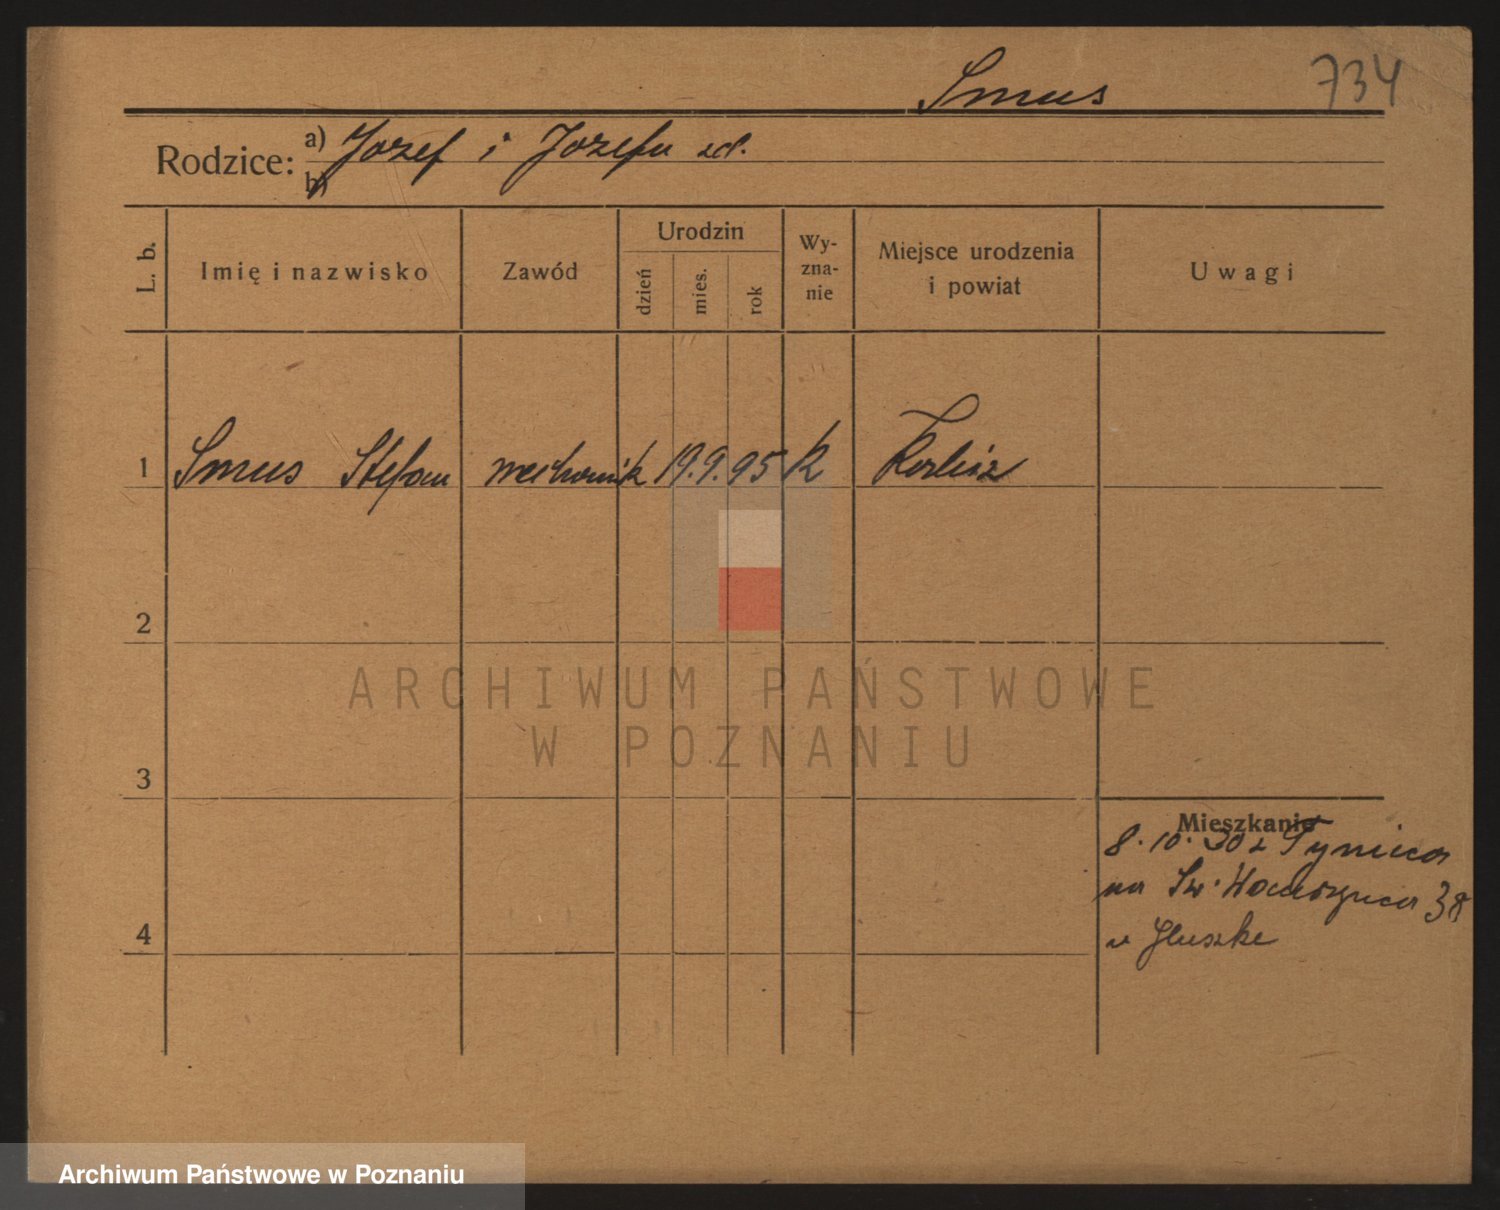 Smus 734
Rodzice: a) Jozef i Jozefa zd.
b)
L. b. Imię i nazwisko Zawód Urodzin dzień mies. rok Wy-zna-nie Miejsce urodzenia i powiat Uwagi
1 Smus Stefan mechanik 19.9.95 k
2
ARCHIWUM PAŃSTWOWE
W POZNANIU
3
Mieszkanie
8.10.30 z Tynica
na Św. 38
u Gluszke
4
Archiwum Państwowe w Poznaniu